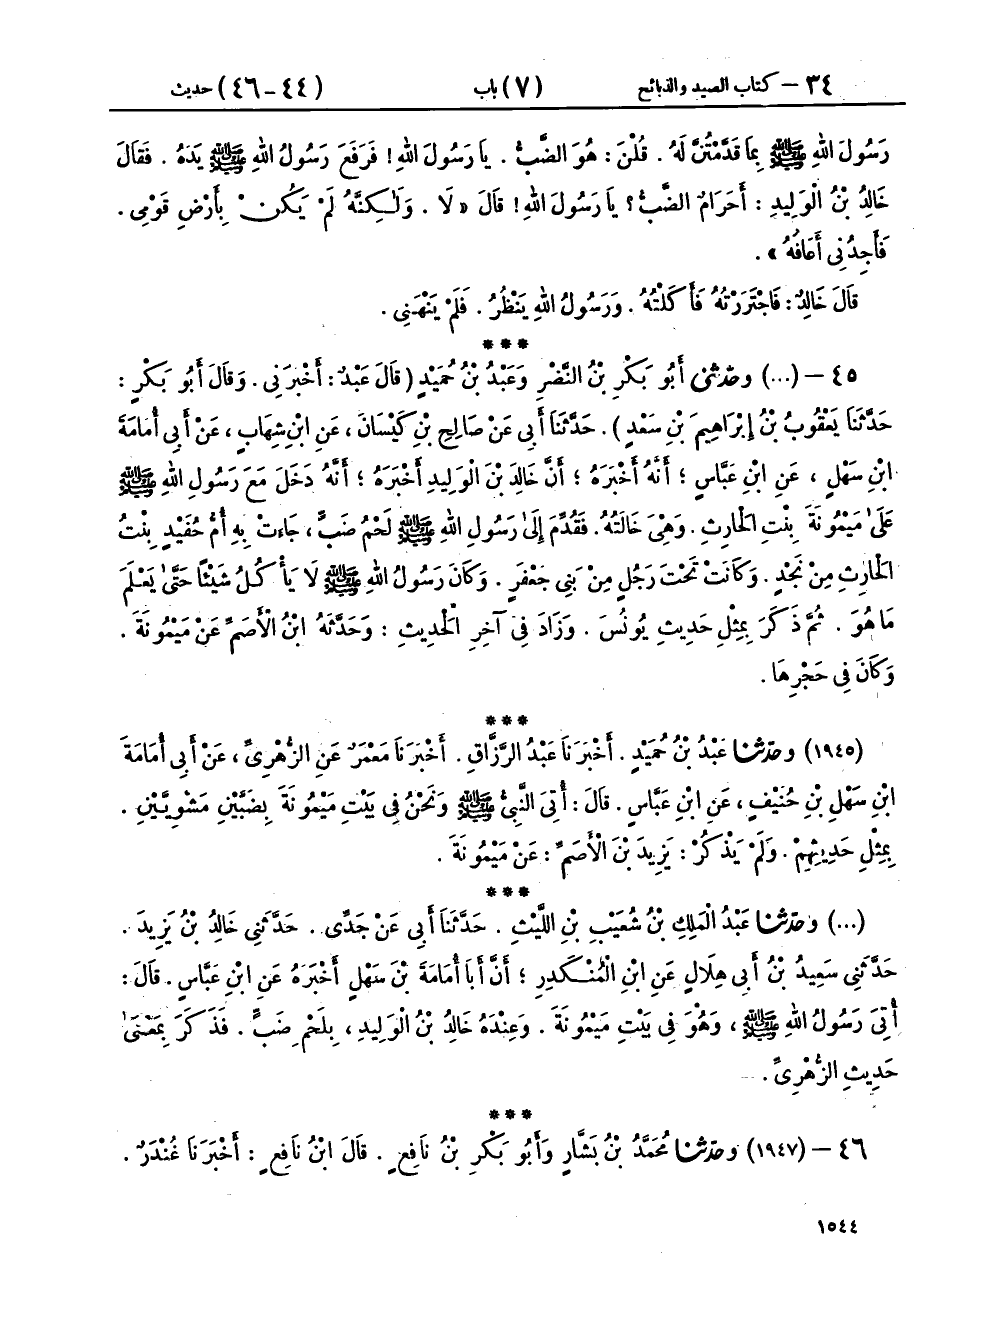 ٣٤ – كتاب الصيد والذبائح (٧) باب (٤٤ - ٤٦) حديث
رَسُولَ اللهِ ﷺ بِمَا قَدَّمْتُنَّ لَهُ . قُلْنَ : هُوَ الضَّبُّ . يَا رَسُولَ اللهِ ! فَرَفَعَ رَسُولُ اللهِ ﷺ يَدَهُ . فَقَالَ
خَالِدُ بْنُ الْوَلِيدِ : أَحَرَامٌ الضَّبُّ ؟ يَا رَسُولَ اللهِ ! قَالَ « لَا . وَلَـٰكِنَّهُ لَمْ يَكُنْ بِأَرْضِ قَوْمِى .
فَأَجِدُنِى أَعَافُهُ » .
قَالَ خَالِدٌ : فَاجْتَرَرْتُهُ فَأَكَلْتُهُ . وَرَسُولُ اللهِ يَنْظُرُ . فَلَمْ يَنْهَنِى .
***
٤٥ – (...) وحَدَّثَنِى أَبُو بَكْرِ بْنُ النَّضْرِ وَعَبْدُ بْنُ حُمَيْدٍ ( قَالَ عَبْدٌ : أَخْبَرَنِى . وَقَالَ أَبُو بَكْرٍ :
حَدَّثَنَا يَعْقُوبُ بْنُ إِبْرَاهِيمَ بْنِ سَعْدٍ ) . حَدَّثَنَا أَبِى عَنْ صَالِحِ بْنِ كَيْسَانَ ، عَنِ ابْنِ شِهَابٍ ، عَنْ أَبِى أُمَامَةَ
ابْنِ سَهْلٍ ، عَنِ ابْنِ عَبَّاسٍ ؛ أَنَّهُ أَخْبَرَهُ ؛ أَنَّ خَالِدَ بْنَ الْوَلِيدِ أَخْبَرَهُ ؛ أَنَّهُ دَخَلَ مَعَ رَسُولِ اللهِ ﷺ
عَلَىٰ مَيْمُونَةَ بِنْتِ الْحَارِثِ . وَهِىَ خَالَتُهُ . فَقُدِّمَ إِلَىٰ رَسُولِ اللهِ ﷺ لَحْمُ ضَبٍّ ، جَاءَتْ بِهِ أُمُّ حُفَيْدٍ بِنْتُ
الْحَارِثِ مِنْ نَجْدٍ . وَكَانَتْ تَحْتَ رَجُلٍ مِنْ بَنِى جَعْفَرٍ . وَكَانَ رَسُولُ اللهِ ﷺ لَا يَأْكُلُ شَيْئًا حَتَّىٰ يَعْلَمَ
مَا هُوَ . ثُمَّ ذَكَرَ بِمِثْلِ حَدِيثِ يُونُسَ . وَزَادَ فِى آخِرِ الْحَدِيثِ : وَحَدَّثَهُ ابْنُ الْأَصَمِّ عَنْ مَيْمُونَةَ .
وَكَانَ فِى حَجْرِهَا .
***
(١٩٤٥) وحَدَّثَنَا عَبْدُ بْنُ حُمَيْدٍ . أَخْبَرَنَا عَبْدُ الرَّزَّاقِ . أَخْبَرَنَا مَعْمَرٌ عَنِ الزُّهْرِىِّ ، عَنْ أَبِى أُمَامَةَ
ابْنِ سَهْلِ بْنِ حُنَيْفٍ ، عَنِ ابْنِ عَبَّاسٍ . قَالَ : أُتِىَ النَّبِىُّ ﷺ وَنَحْنُ فِى بَيْتِ مَيْمُونَةَ بِضَبَّيْنِ مَشْوِيَّيْنِ .
بِمِثْلِ حَدِيثِهِمْ . وَلَمْ يَذْكُرْ : يَزِيدَ بْنَ الْأَصَمِّ : عَنْ مَيْمُونَةَ .
***
(...) وحَدَّثَنَا عَبْدُ الْمَلِكِ بْنُ شُعَيْبِ بْنِ اللَّيْثِ . حَدَّثَنَا أَبِى عَنْ جَدِّى . حَدَّثَنِى خَالِدُ بْنُ يَزِيدَ .
حَدَّثَنِى سَعِيدُ بْنُ أَبِى هِلَالٍ عَنِ ابْنِ الْمُنْكَدِرِ ؛ أَنَّ أَبَا أُمَامَةَ بْنَ سَهْلٍ أَخْبَرَهُ عَنِ ابْنِ عَبَّاسٍ . قَالَ :
أُتِىَ رَسُولُ اللهِ ﷺ ، وَهُوَ فِى بَيْتِ مَيْمُونَةَ . وَعِنْدَهُ خَالِدُ بْنُ الْوَلِيدِ ، بِلَحْمِ ضَبٍّ . فَذَكَرَ بِمَعْنَىٰ
حَدِيثِ الزُّهْرِىِّ .
***
٤٦ – (١٩٤٧) وحَدَّثَنَا مُحَمَّدُ بْنُ بَشَّارٍ وَأَبُو بَكْرِ بْنُ نَافِعٍ . قَالَ ابْنُ نَافِعٍ : أَخْبَرَنَا غُنْدَرٌ .
١٥٤٤